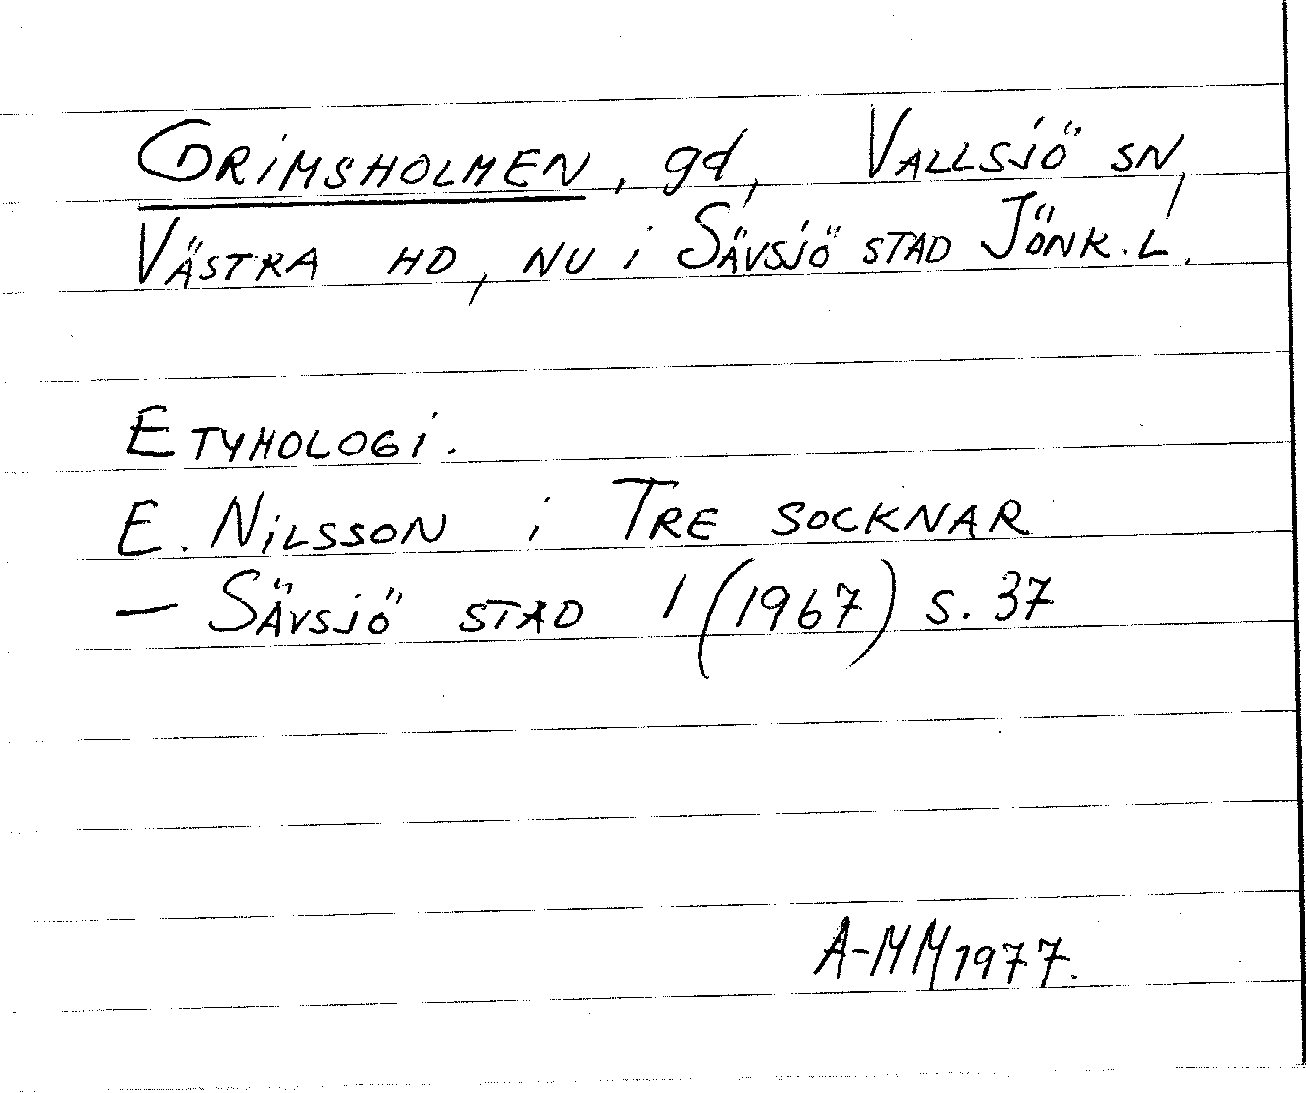 GRIMSHOLMEN, gd, VALLSJÖ SN,
VÄSTRA HD, NU i SÄVSJÖ STAD JÖNK.L.
ETYMOLOGI.
E. NILSSON i TRE SOCKNAR
— SÄVSJÖ STAD 1 (1967) S. 37
A-MM 1977.